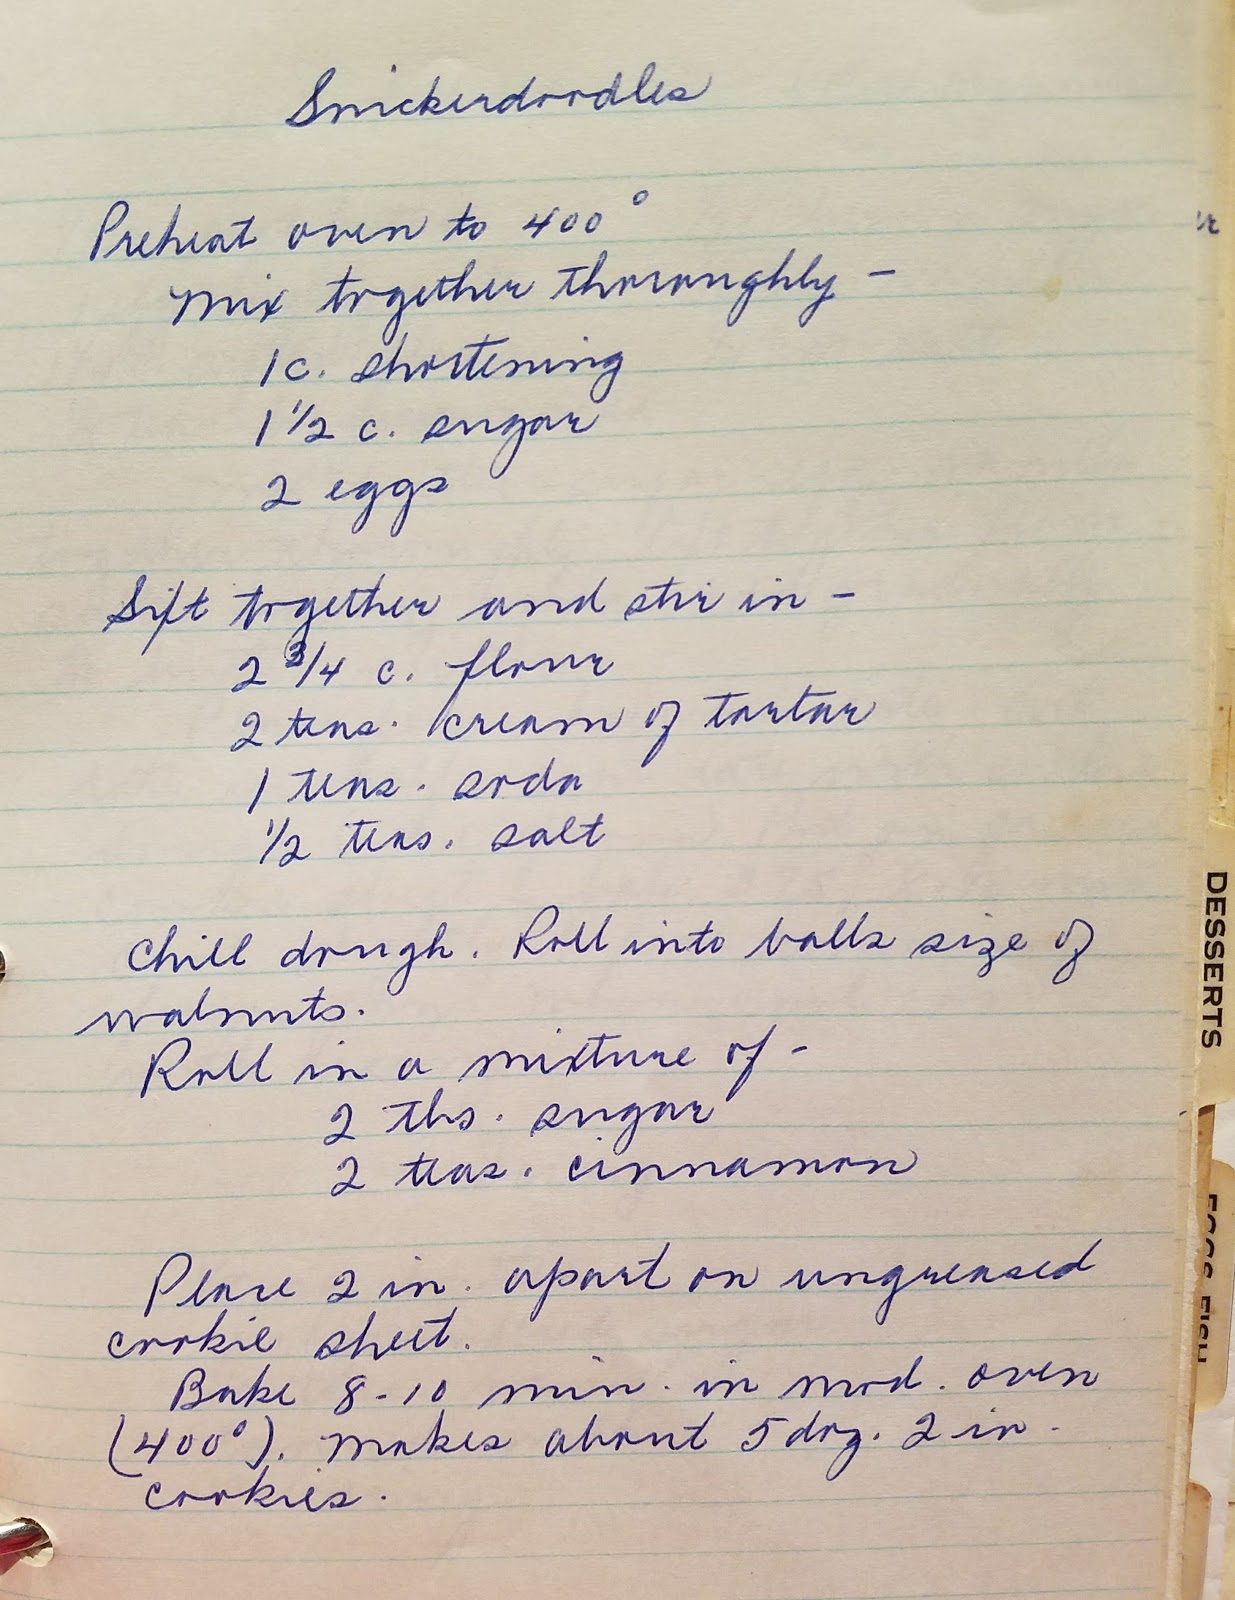 Snickerdoodles
Preheat oven to 400°
Mix together thoroughly -
1 c. shortening
1 1/2 c. sugar
2 eggs
Sift together and stir in -
2 3/4 c. flour
2 teas. cream of tartar
1 teas. soda
1/2 teas. salt
Chill dough. Roll into balls size of
walnuts.
Roll in a mixture of -
2 tbs. sugar
2 teas. cinnamon
Place 2 in. apart on ungreased
cookie sheet.
Bake 8-10 min. in mod. oven
(400°). Makes about 5 doz. 2 in.
cookies.
DESSERTS
EGGS FISH